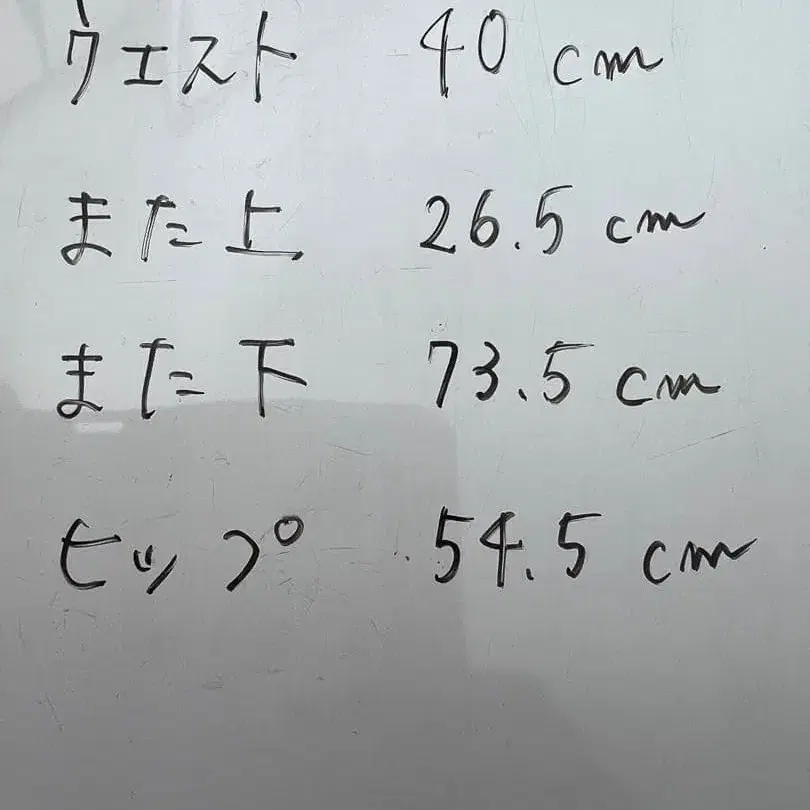 ウエスト 40 cm
また上 26.5 cm
また下 73.5 cm
ヒップ 54.5 cm